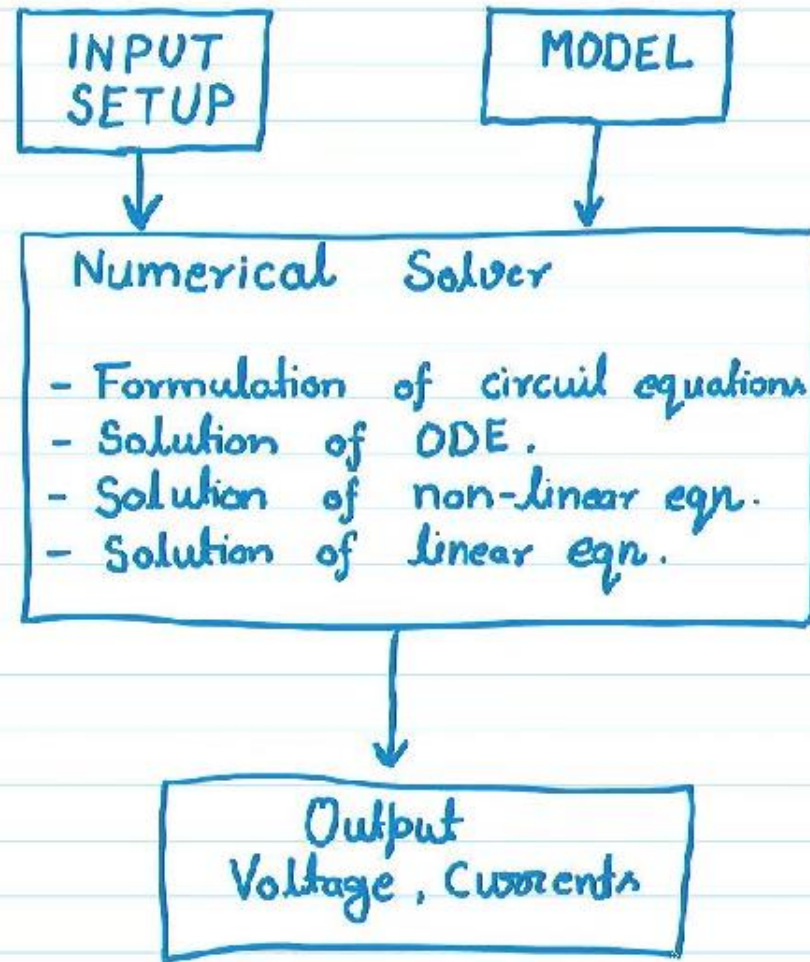 INPUT
SETUP
MODEL
Numerical Solver
- Formulation of circuit equations
- Solution of ODE.
- Solution of non-linear eqn.
- Solution of linear eqn.
Output
Voltage, Currents